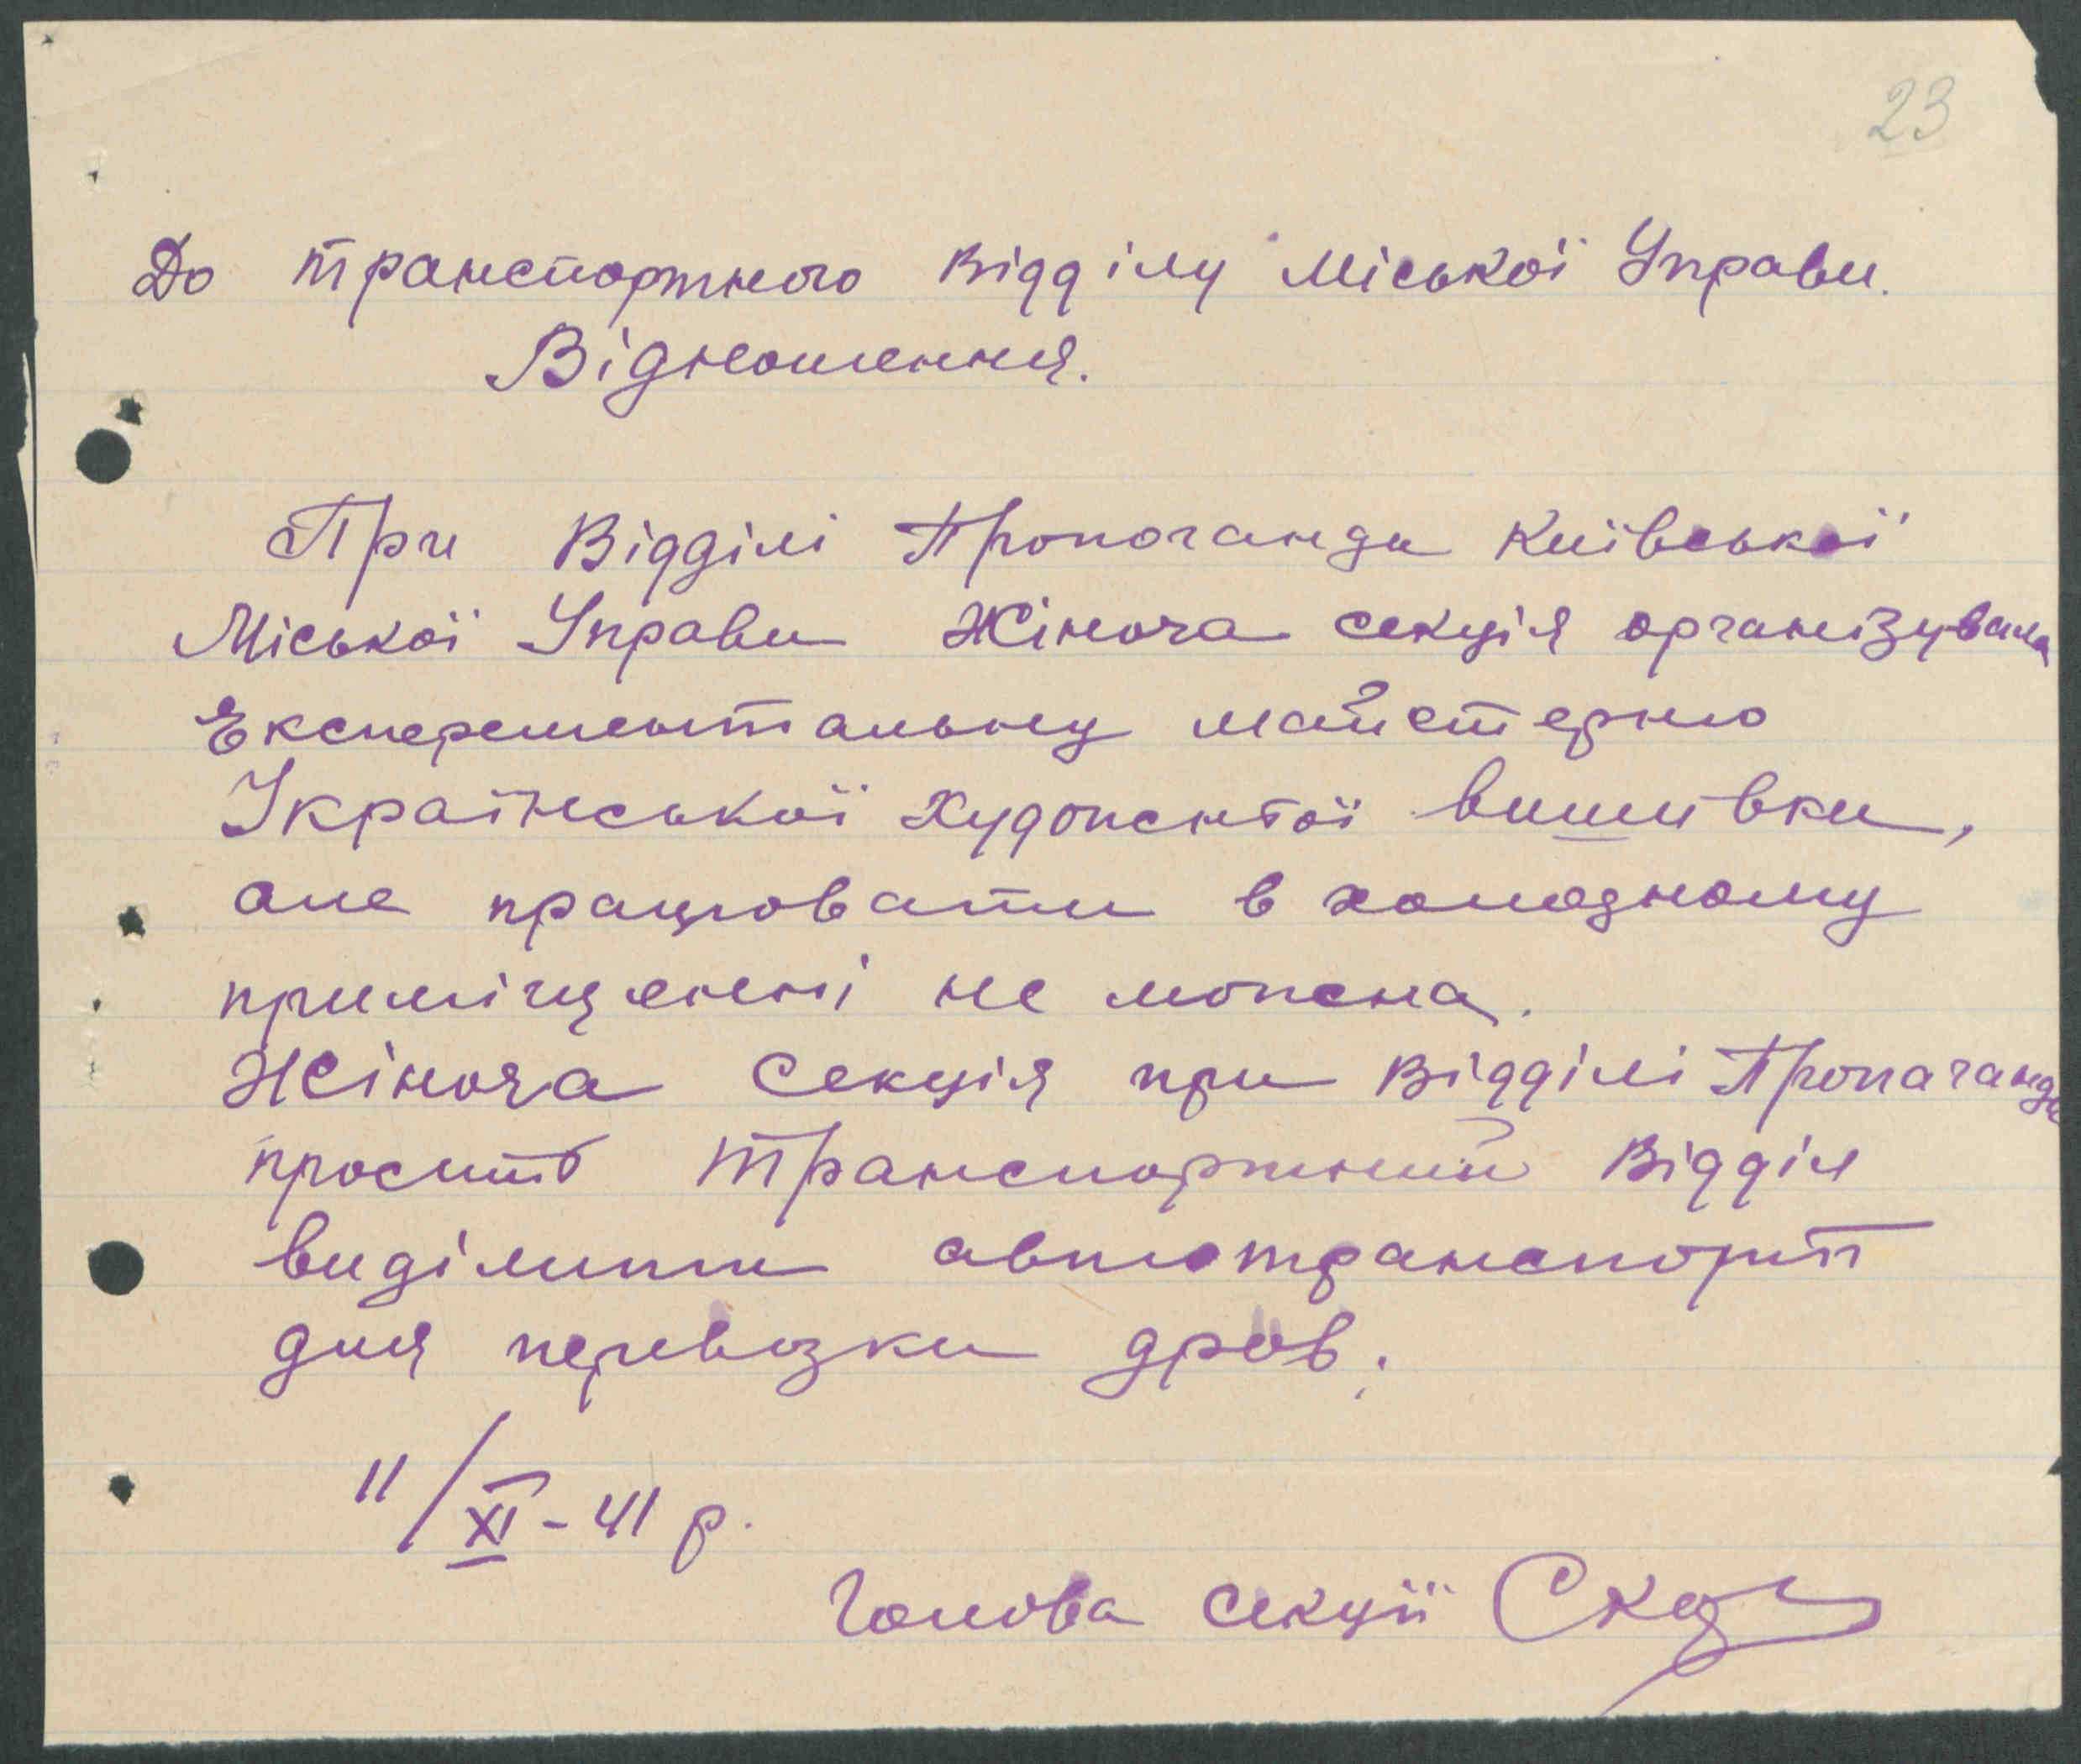 23
До транспортного Відділу Міської Управи.
Відношення.
При Відділі Пропоганди Київської
Міської Управи Жіноча секція організувала
Експерементальну майстерню
Української Художньої вишивки,
але працювати в холодному
приміщенні не можна.
Жіноча Секція при Відділі Пропаганди
просить Транспортний Відділ
виділити автотранспорт
для перевозки дров.
11/XI-41 р.
Голова секції